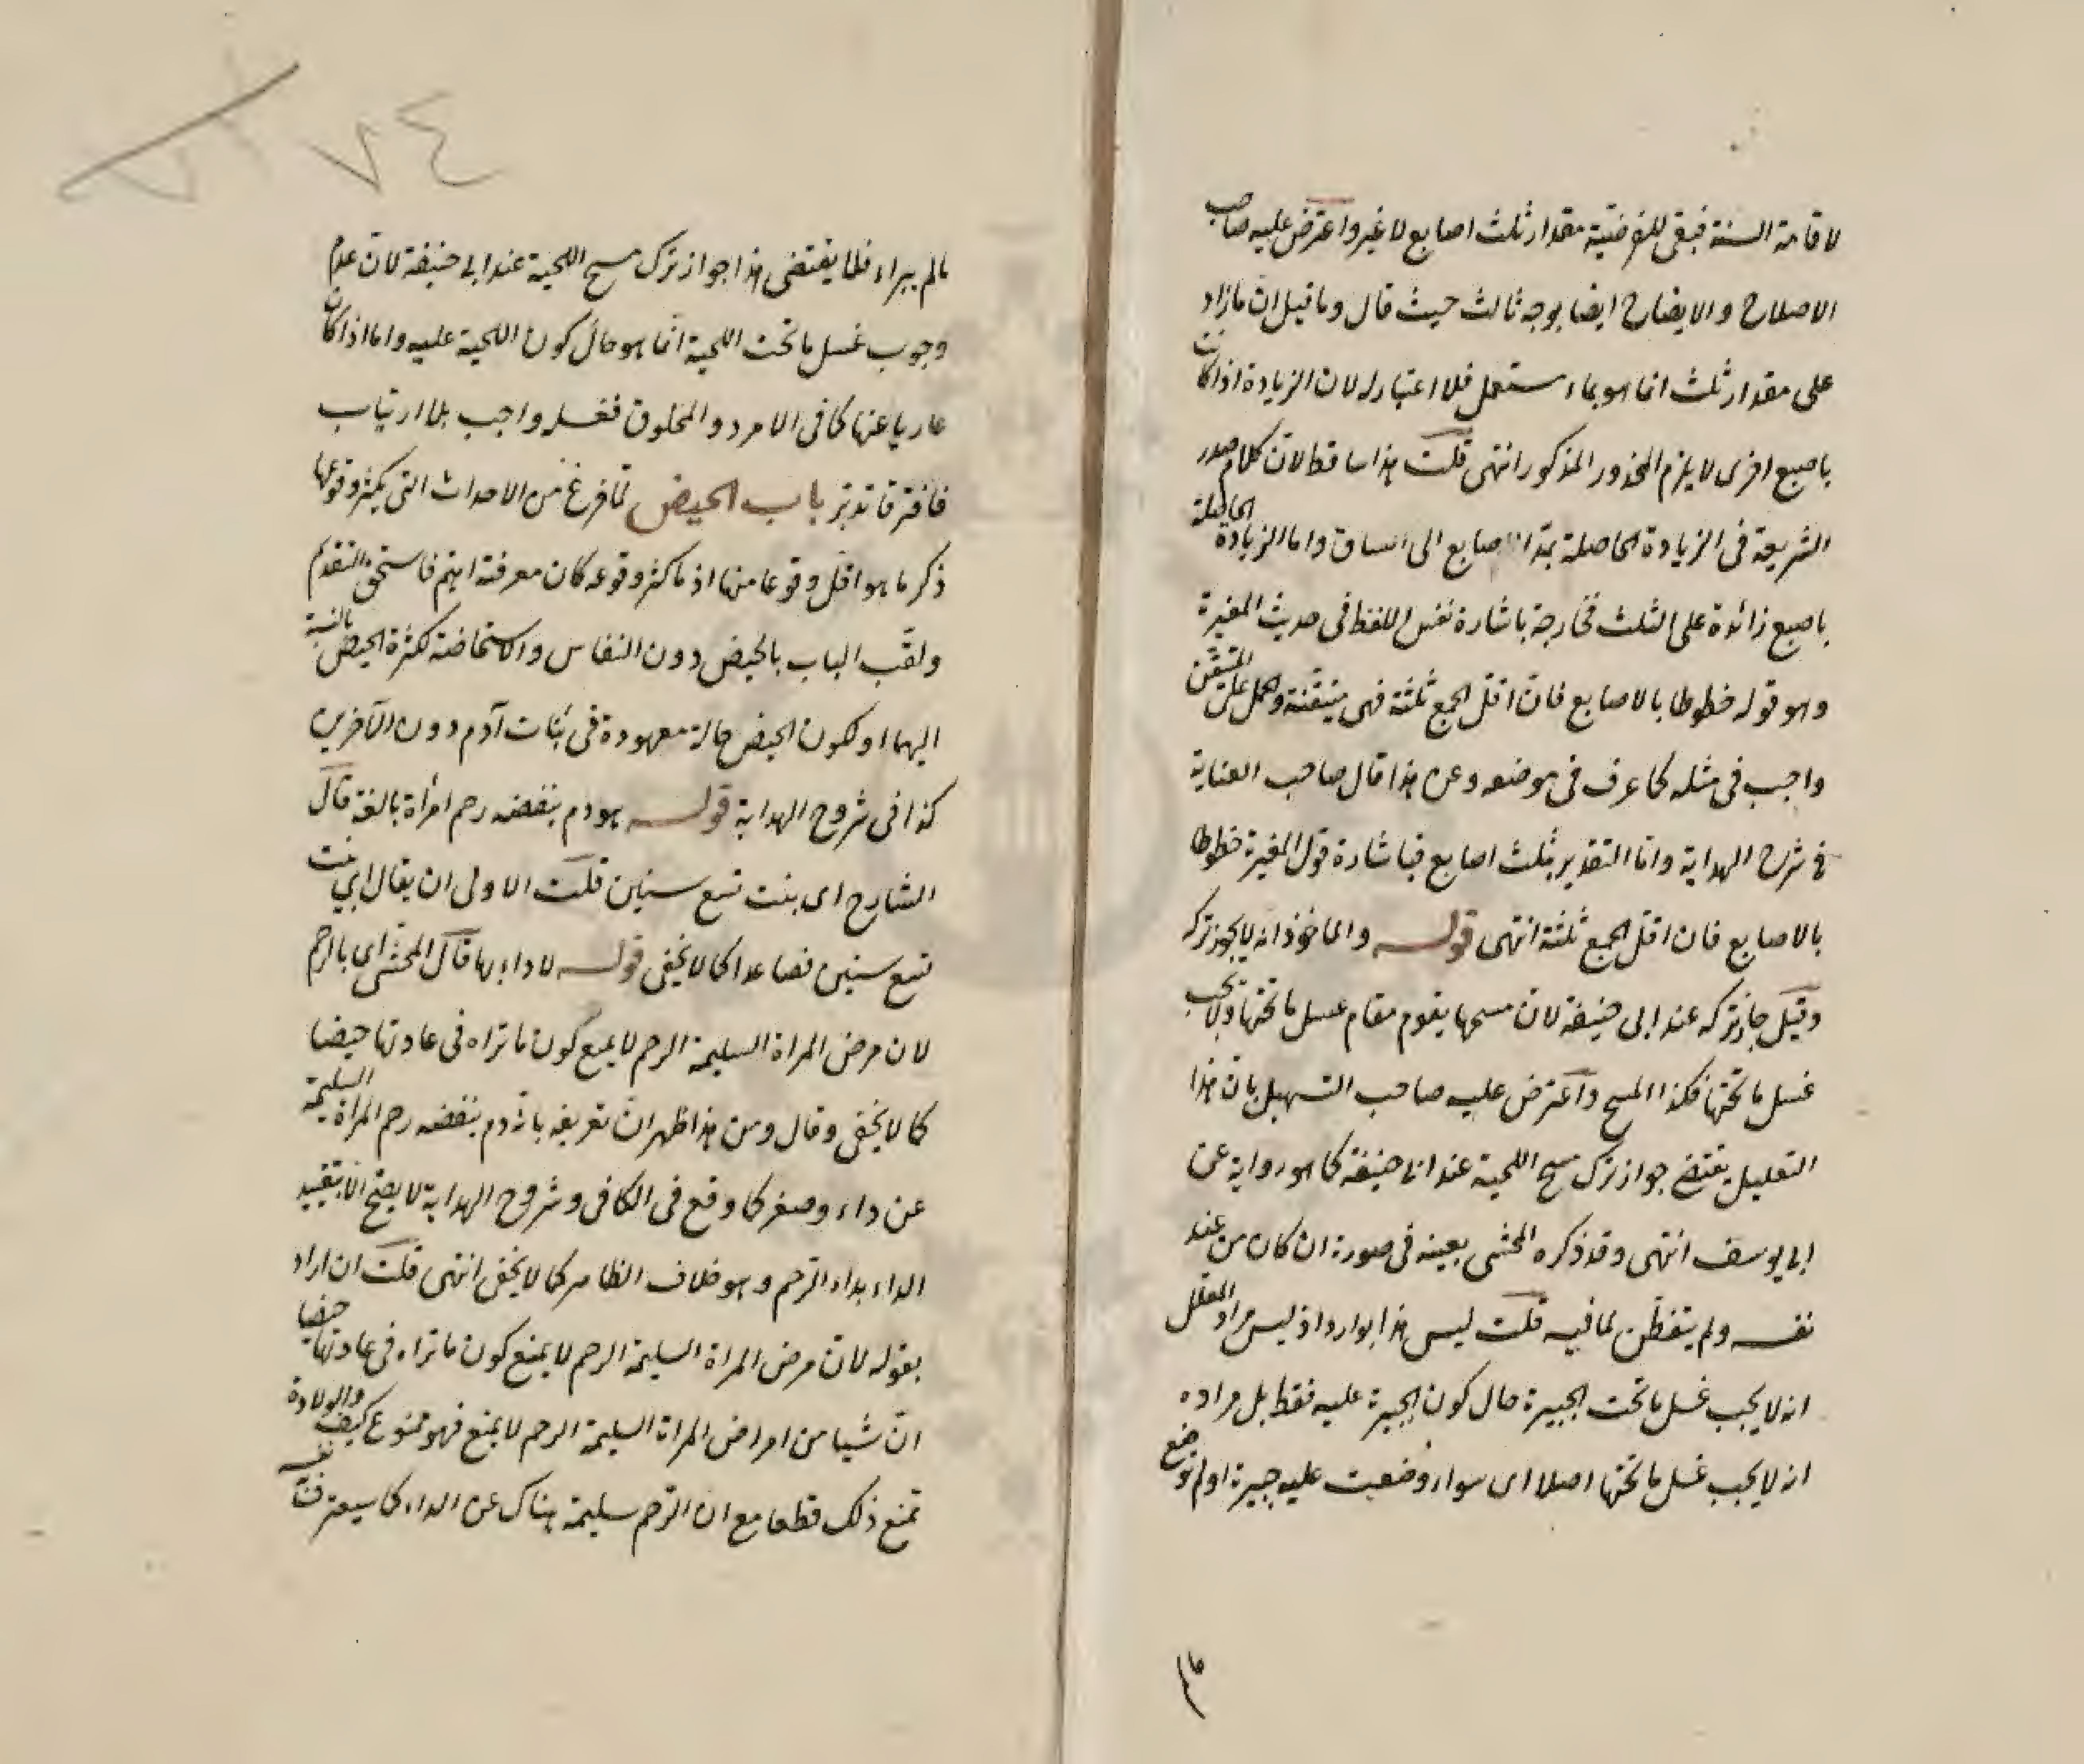 لاقامة السنة فبقى للفرضية مقدار ثلث اصابع لا غير واعترض عليه صاحب
الاصلاح والايضاح ايضا بوجه ثالث حيث قال وما قيل ان ما زاد
على مقدار ثلث انما هو بماء مستعمل فلا اعتبار له لان الزيادة اذا كانت
باصبع اخرى لا يلزم المحذور المذكور انتهى قلت هذا ساقط لان كلام صدر
الشريعة فى الزيادة الحاصلة بمد الاصابع الى الساق واما الزيادة الحاصلة
باصبع زائدة على الثلث فخارجة باشارة نفس اللفظ فى حديث المغيرة
وهو قوله خطوطا بالاصابع فان اقل الجمع ثلثة فهى متيقنة والحمل على المتيقن
واجب فى مثله كما عرف فى موضعه وعن هذا قال صاحب العناية
فى شرح الهداية واما التقدير بثلث اصابع فباشارة قول المغيرة خطوطا
بالاصابع فان اقل الجمع ثلثة انتهى قوله والماخوذ انه لا يجوز تركه
وقيل جاز تركه عند ابى حنيفة لان مسحها يقوم مقام غسل ما تحتها ولا يجب
غسل ما تحتها فكذا المسح واعترض عليه صاحب التسهيل بان هذا
التعليل يقتضى جواز ترك مسح اللحية عند ابا حنيفة كما هو رواية عن
ابى يوسف انتهى وقد ذكره المحشى بعينه فى صورة ان كان من عند
نفسه ولم يتفطن لما فيه قلت ليس هذا بوارد اذ ليس مراد المعلل
انه لا يجب غسل ما تحت الجبيرة حال كون الجبيرة عليه فقط بل مراده
انه لا يجب غسل ما تحتها اصلا اى سواء وضعت عليه جبيرة او لم توضع
٧٤
مالم يبراء فلا يقتضى هذا جواز ترك مسح اللحية عند ابى حنيفة لان عدم
وجوب غسل ما تحت اللحية انما هو حال كون اللحية عليه واما اذا كان
عاريا عنها كما فى الامرد والمحلوق فغسله واجب بلا ارتياب
فافترقا تدبر باب الحيض لما فرغ من الاحداث التى يكثر وقوعها
ذكر ما هو اقل وقوعا منها اذ ما كثر وقوعه كان معرفته اهم فاستحق التقدم
ولقب الباب بالحيض دون النفاس والاستحاضة لكثرة الحيض بالنسبة
اليهما او لكون الحيض حالة معهودة فى بنات آدم دون الآخرين
كذا فى شروح الهداية قوله هو دم ينفضه رحم امرأة بالغة قال
الشارح اى بنت تسع سنين قلت الاولى ان يقال اى بنت
تسع سنين فصاعدا كما لا يخفى قوله لا داء بها قال المحشى اى بالرحم
لان مرض المراة السليمة الرحم لا يمنع كون ما تراه فى عادتها حيضا
كما لا يخفى وقال ومن هذا ظهر ان تعريفه بانه دم ينفضه رحم المراة السليمة
عن داء وصغر كما وقع فى الكافى وشروح الهداية لا يصح الا بتقييد
الداء بداء الرحم وهو خلاف الظاهر كما لا يخفى انتهى قلت ان اراد
بقوله لان مرض المراة السليمة الرحم لا يمنع كون ما تراه فى عادتها حيضا
ان شيا من امراض المراة السليمة الرحم لا يمنع فهو ممنوع كيف والولادة
تمنع ذلك قطعا مع ان الرحم سليمة هناك عن الداء كما سيعترف نفسه